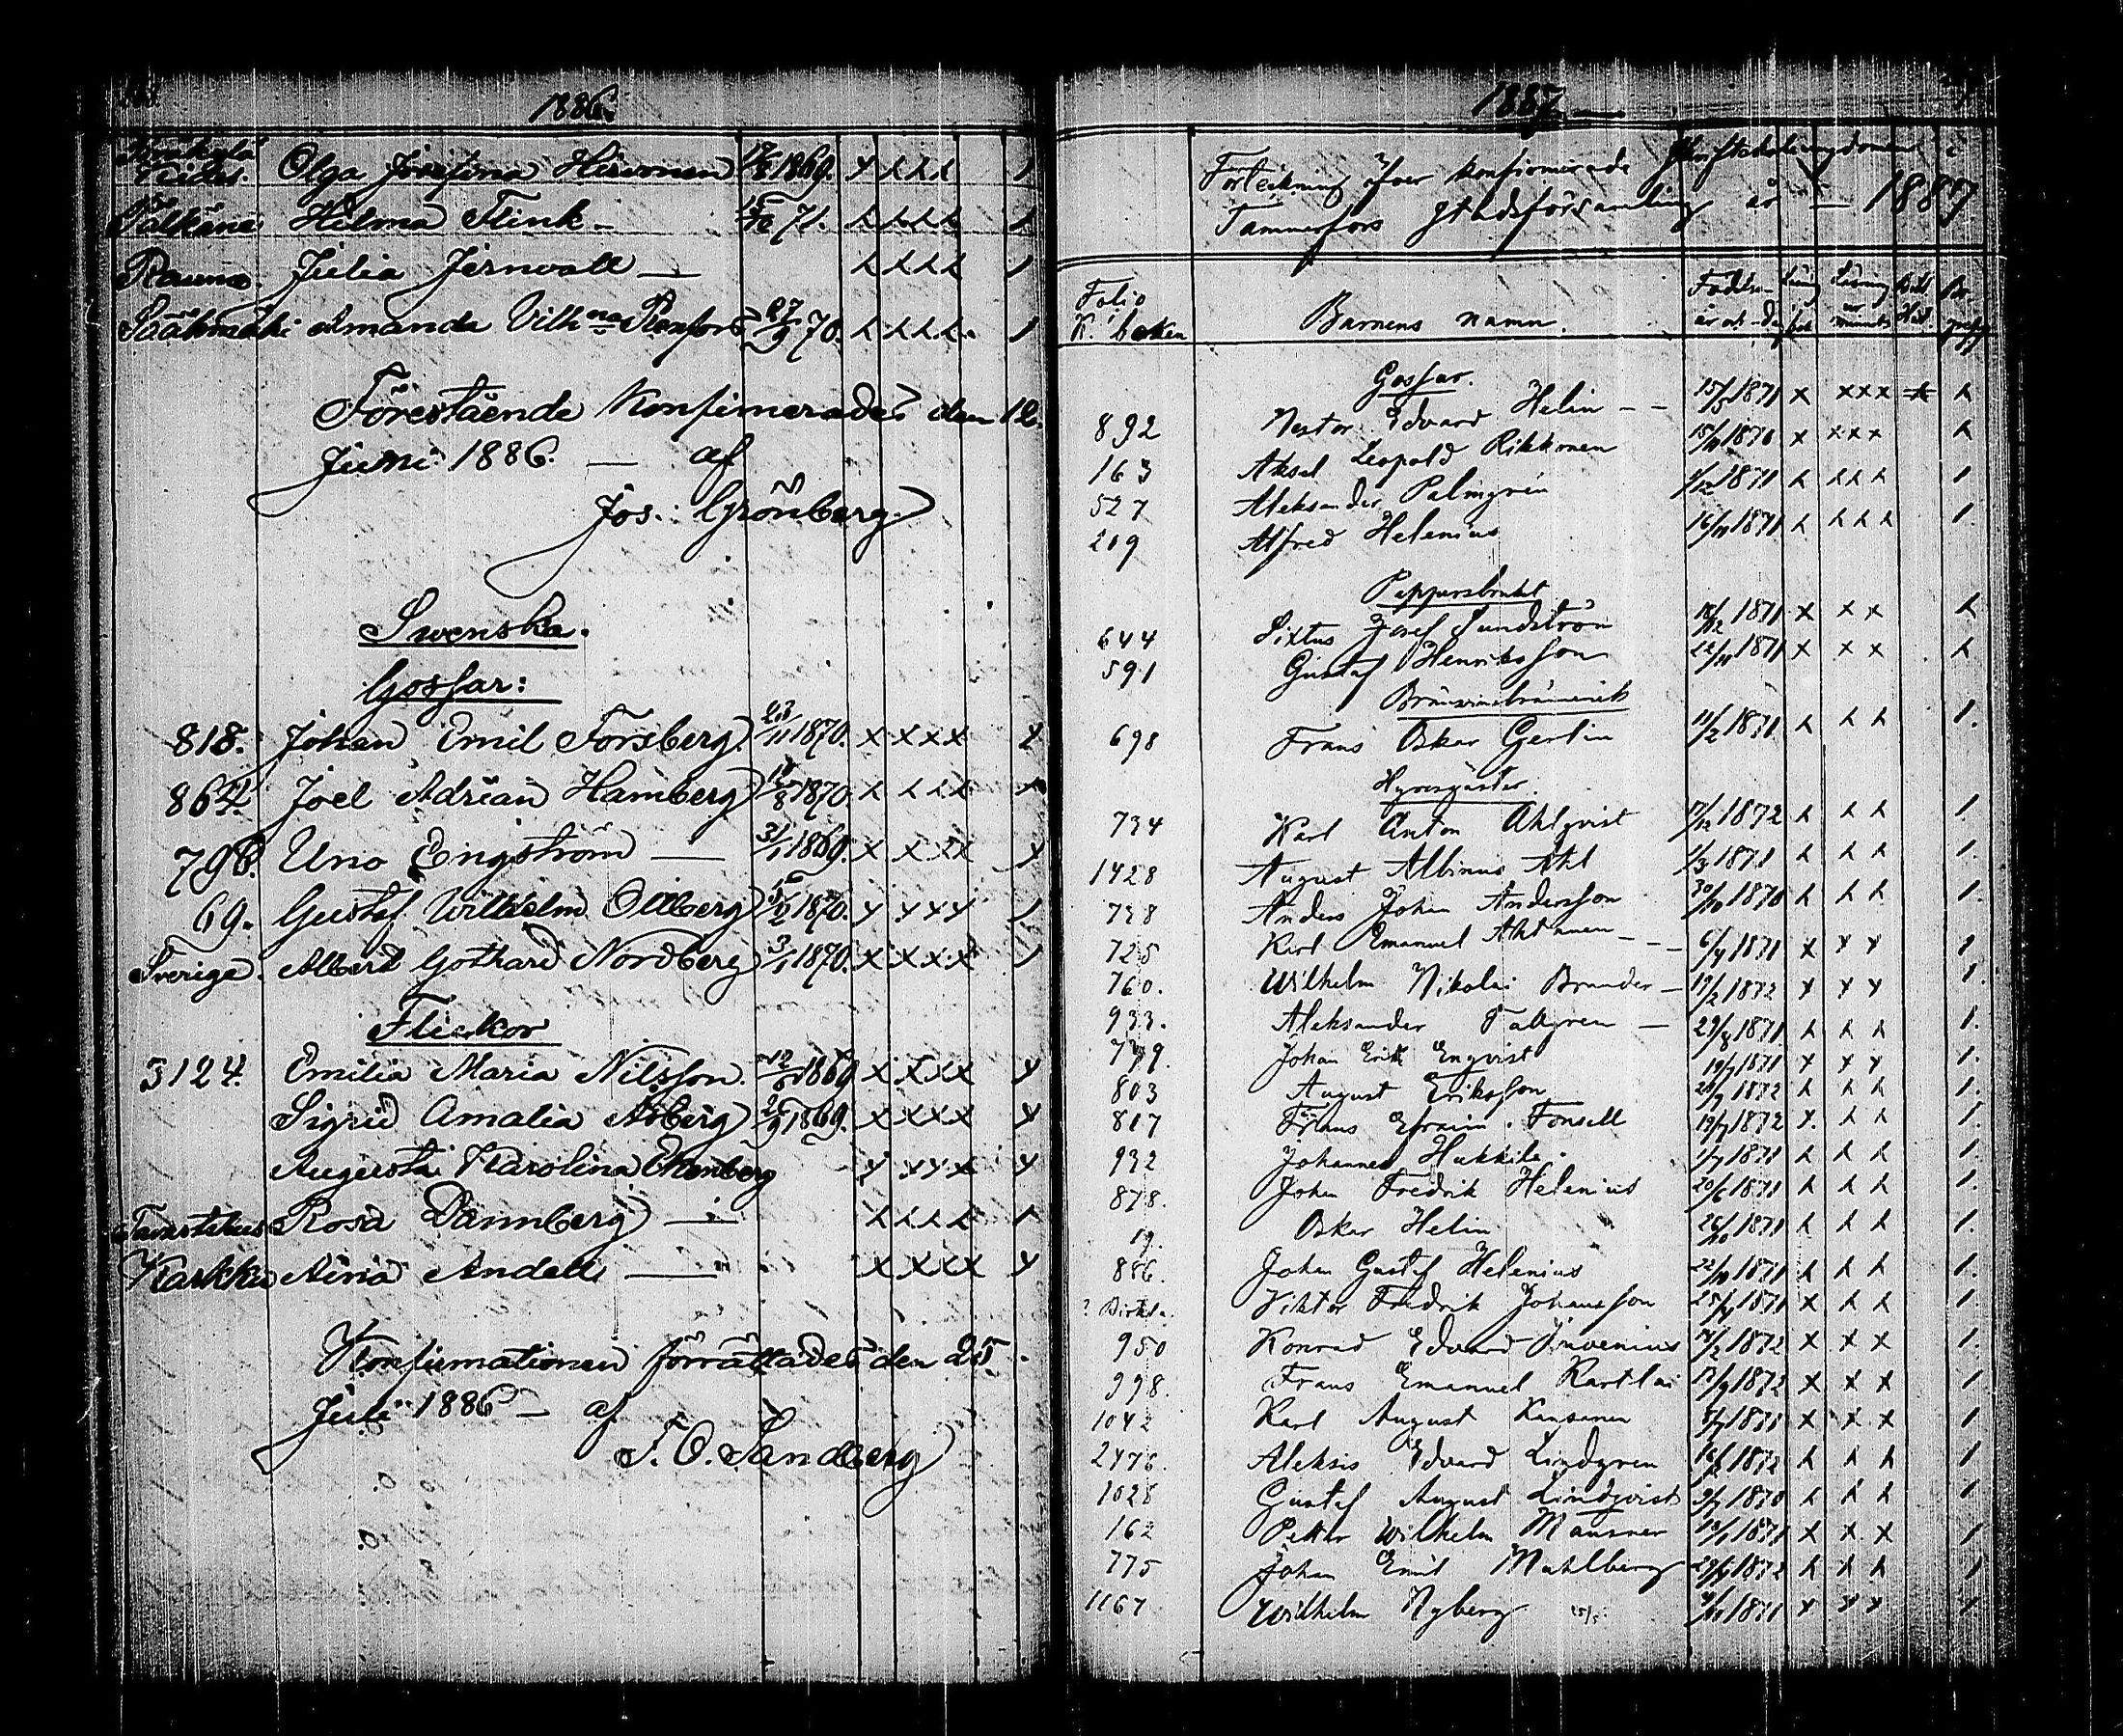 1886.
Olga Josefina Hirvonen 1869. x x x x 1
Pälkäne Hilma Flink - 71. x x x x 1
Rauma. Julia Jernvall — x x x x 1
Sääksmäki Amanda Vilh:na Renfors 27/9 70. x x x x 1
Förestående Konfirmerades den 12.
Juni 1886. — af
Jos. Grönberg.
Swenska.
Gossar:
818. Johan Emil Forsberg. 23/11 1870. x x x x x
864. Joel Adrian Hamberg 18/8 1870 x x x x x
798. Uno Engström — 3/1 1869. x x x x x
69. Gustaf Wilhelm Ollberg 1870. x x x x 1
Sverige. Albert Gothard Nordberg 3/1 1870. x x x x 1
Flickor
3124. Emilia Maria Nilsson. 12/6 1869 x x x x x
Sigrid Amalia Åberg 1869. x x x x x
Augusta Karolina Ekenberg x x x x x
Tavastehus Rosa Dannberg — x x x x 1
Karkku Aina Andell — x x x x x
Konfirmationen förrättades den 25.
Juli 1886 — af
F. O. Sandberg
1887
Förteckning öfver konfirmerade Skriftskolungdomar i
Tammerfors stadsförsamling år — 1887
Folio
K. boken Barnens namn.
Gossar.
892 Nestor Edvard Helin - - 15/5 1871 x x x x x
163 Aksel Leopold Rikkonen 18/11 1870 x x x x x
527 Aleksander Palmgren 1/12 1871 x x x x 1
209 Alfred Helenius 16/11 1871 x x x x 1.
Pappersbruket
644 Sixtus Josef Sundström 18/12 1871 x x x x
591 Gustaf Henriksson 22/11 1871 x x x x
Bränvinsbränneriet
698 Frans Oskar Gerlin 11/2 1871 x x x 1.
Hyresgäster.
734 Karl Anton Ahlqvist 17/12 1872 x x x 1.
1428 August Albinus Ahl 1/3 1871 x x x 1.
738 Anders Johan Andersson 30/10 1870 x x x 1.
725 Karl Emanuel Ahtonen - - 6/4 1871 x x x 1
760. Wilhelm Nikolai Brander - 19/2 1872 x x x 1.
933. Aleksander Tallgren - 29/8 1871 x x x 1.
749. Johan Erik Enqvist 19/7 1871 x x x 1.
803 August Eriksson 1872 x x x 1.
817 Frans Efraim Fonsell 19/7 1872 x. x x 1.
932 Johannes Hukkila. 1/7 1871 x x x 1.
878. Johan Fredrik Helenius 20/6 1871 x x x 1.
19. Oskar Helin 26/10 1871 x x x 1.
886. Johan Gustaf Helenius 22/10 1871 x x x 1.
? Birkala. Viktor Fredrik Johansson 1871 x x x 1.
950 Konrad Edvard Juvenius 1872 x x x 1
998. Frans Emanuel Karttu 17/9 1872 x x x 1
1042 Karl August Kansanen 1871 x x x 1.
2476. Aleksis Edvard Lindgren 1872 x x x 1.
1028 Gustaf August Lindqvist 9/7 1870 x x x 1
162 Petter Wilhelm Mansner 1871 x x x 1
775 Johan Emil Muhlberg 1872 x x x 1
1167 Wilhelm Nyberg 1871 x x x 1